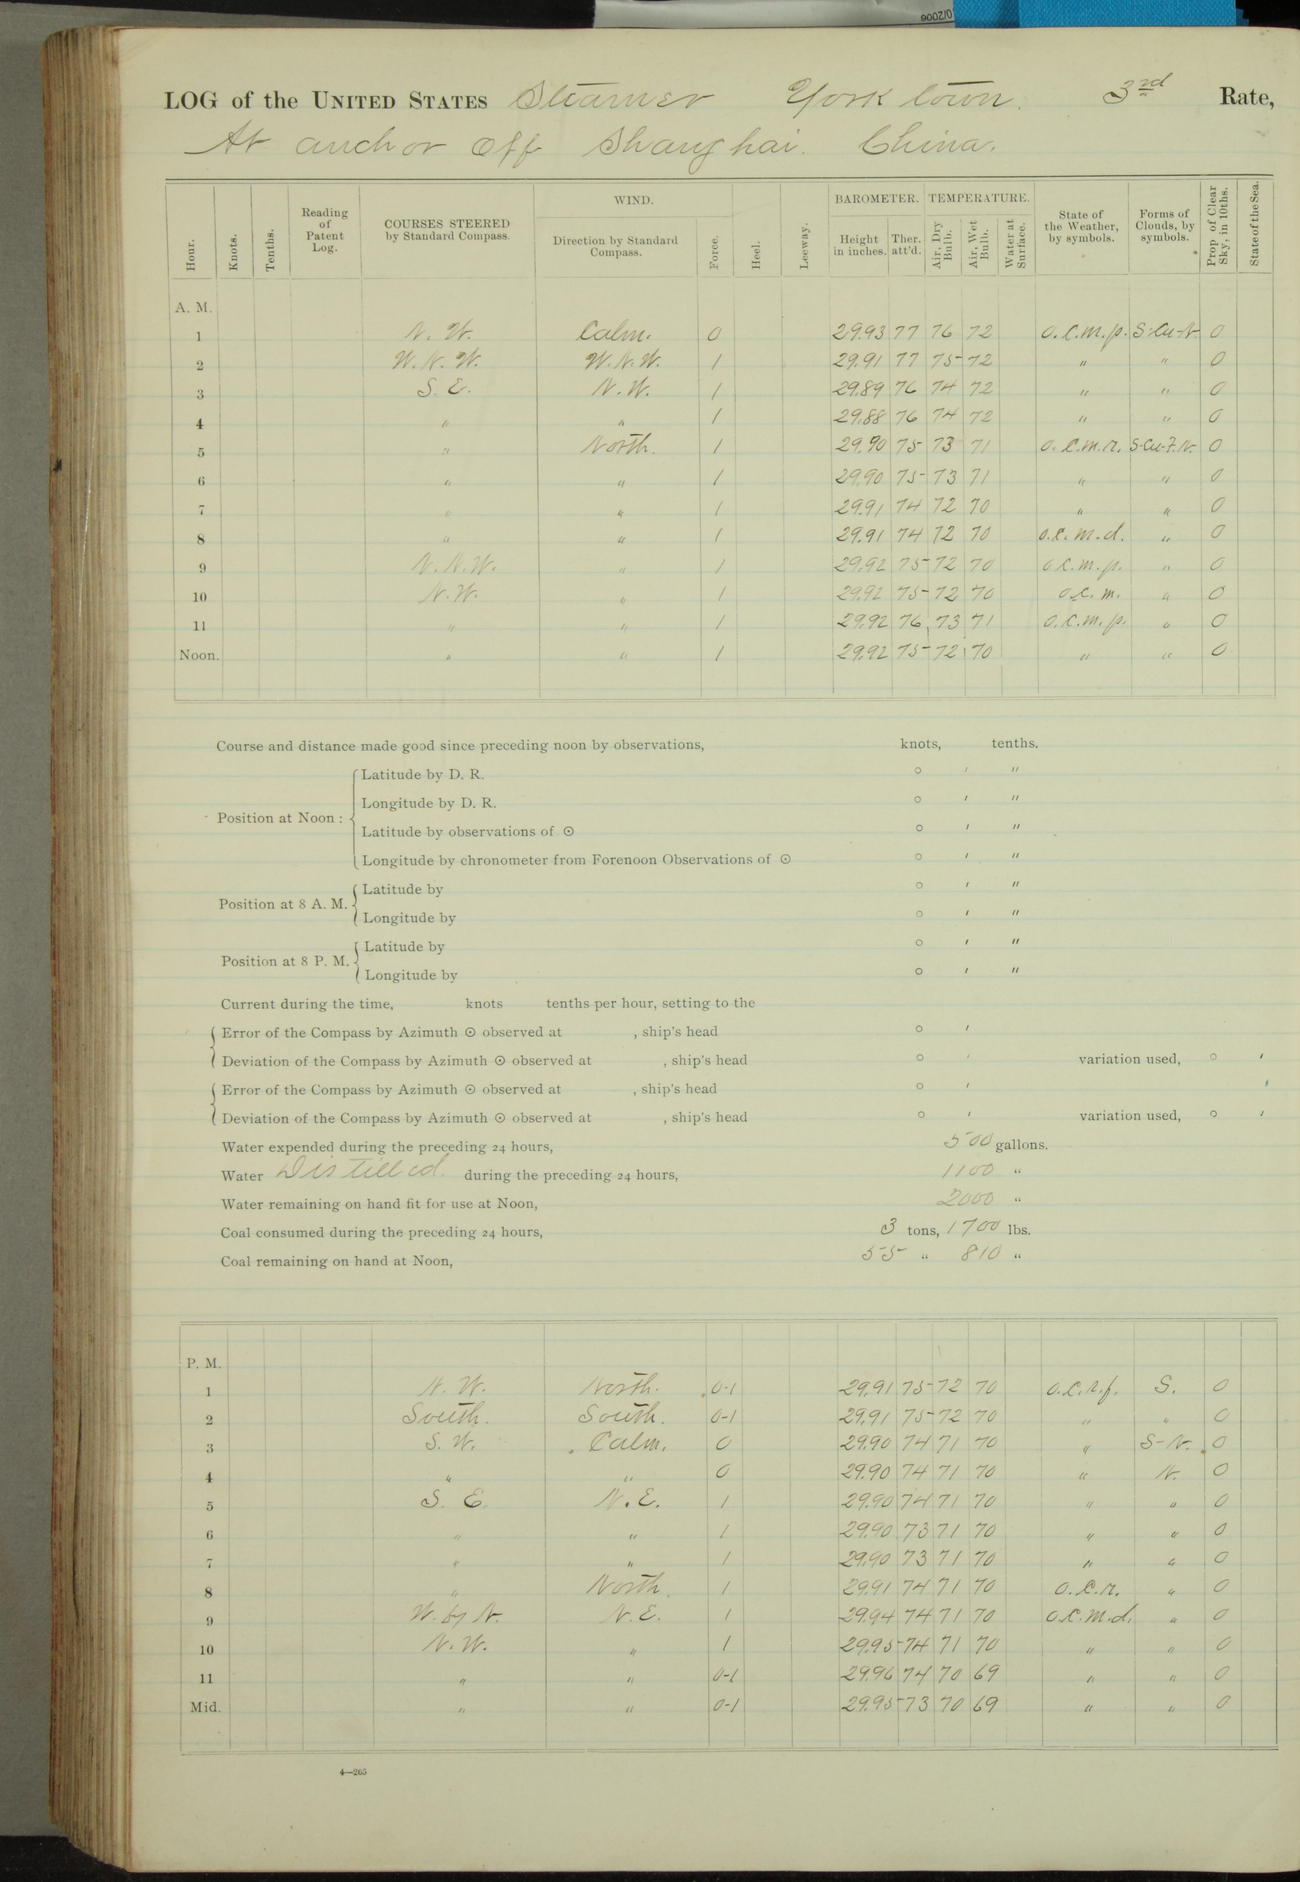 90020/2006
LOG of the UNITED STATES Steamer Yorktown. 3rd Rate,
At anchor off Shanghai. China.
Hour. Knots. Tenths. Reading of Patent Log. COURSES STEERED by Standard Compass. WIND. Direction by Standard Compass. Force. Heel. Leeway. BAROMETER. Height in inches. Ther. att'd. TEMPERATURE. Air, Dry Bulb. Air, Wet Bulb. Water at Surface. State of the Weather, by symbols. Forms of Clouds, by symbols. Prop. of Clear Sky, in 10ths. State of the Sea.
A. M.
1 N. W. Calm. 0 29.93 77 76 72 o.c.m.p. S-Cu-N. 0
2 W. N. W. W. N. W. 1 29.91 77 75 72 " " 0
3 S. E. N. W. 1 29.89 76 74 72 " " 0
4 " " 1 29.88 76 74 72 " " 0
5 " North. 1 29.90 75 73 71 o.c.m.r. S-Cu-F.N. 0
6 " " 1 29.90 75 73 71 " " 0
7 " " 1 29.91 74 72 70 " " 0
8 " " 1 29.91 74 72 70 o.c.m.d. " 0
9 N. N. W. " 1 29.92 75 72 70 o.c.m.p. " 0
10 N. W. " 1 29.92 75 72 70 o.c.m. " 0
11 " " 1 29.92 76 73 71 o.c.m.p. " 0
Noon. " " 1 29.92 75 72 70 " " 0
Course and distance made good since preceding noon by observations, knots, tenths.
Latitude by D. R. ° ′ ″
Longitude by D. R. ° ′ ″
Position at Noon :
Latitude by observations of ☉ ° ′ ″
Longitude by chronometer from Forenoon Observations of ☉ ° ′ ″
Latitude by ° ′ ″
Position at 8 A. M.
Longitude by ° ′ ″
Latitude by ° ′ ″
Position at 8 P. M.
Longitude by ° ′ ″
Current during the time, knots tenths per hour, setting to the
Error of the Compass by Azimuth ☉ observed at , ship's head ° ′
Deviation of the Compass by Azimuth ☉ observed at , ship's head ° ′ variation used, ° ′
Error of the Compass by Azimuth ☉ observed at , ship's head ° ′
Deviation of the Compass by Azimuth ☉ observed at , ship's head ° ′ variation used, ° ′
Water expended during the preceding 24 hours, 500 gallons.
Water Distilled during the preceding 24 hours, 1100 "
Water remaining on hand fit for use at Noon, 2000 "
Coal consumed during the preceding 24 hours, 3 tons, 1700 lbs.
Coal remaining on hand at Noon, 55 " 810 "
P. M.
1 N. W. North. 0-1 29.91 75 72 70 o.c.r.f. S. 0
2 South. South. 0-1 29.91 75 72 70 " " 0
3 S. W. Calm. 0 29.90 74 71 70 " S-N. 0
4 " " 0 29.90 74 71 70 " N. 0
5 S. E. N. E. 1 29.90 74 71 70 " " 0
6 " " 1 29.90 73 71 70 " " 0
7 " " 1 29.90 73 71 70 " " 0
8 " North. 1 29.91 74 71 70 o.c.r. " 0
9 W. by N. N. E. 1 29.94 74 71 70 o.c.m.d. " 0
10 N. W. " 1 29.95 74 71 70 " " 0
11 " " 0-1 29.96 74 70 69 " " 0
Mid. " " 0-1 29.95 73 70 69 " " 0
4—265